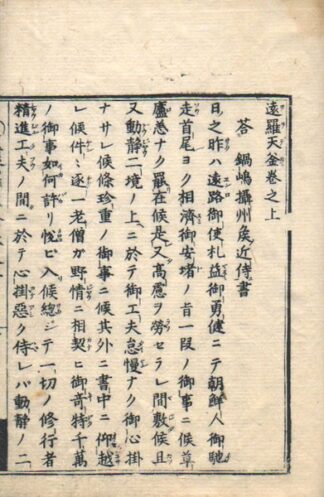 遠羅天釜巻之上
答　鍋嶋攝州矦近侍書
日之昨ハ遠路御使札益御勇健ニテ朝鮮人御馳
走首尾ヨク相濟御安堵ノ旨一段ノ御事ニ候草
廬恙ナク罷在候是又高慮ヲ勞セラレ間敷候且
又動静二境ノ上ニ於テ御工夫怠慢ナク御心掛
ナサレ候條珍重ノ御事ニ候其外ニ書中ニ仰越
レ候件〻逐一老僧ガ野情ニ相契ヒ御奇特千萬
ノ御事如何許リ悦ビ入候總ジテ一切ノ修行者
精進工夫ノ間ニ於テ心掛惡ク侍レバ動静ノ二